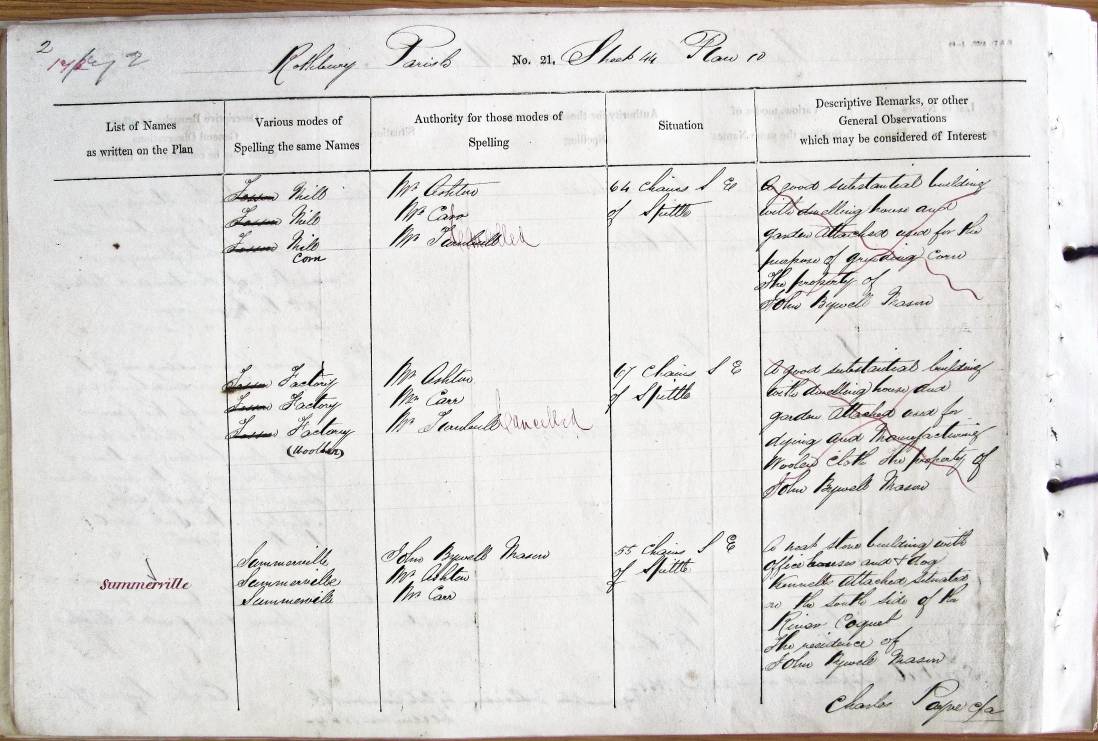 2
Rothbury Parish No. 21, Sheet 44 Plan 10
List of Names
as written on the Plan
Various modes of
Spelling the same Names
Authority for those modes of
Spelling
Situation
Descriptive Remarks, or other
General Observations
which may be considered of Interest
Mill
Mill
Mill
Corn
Mr Ashton
Mr Carr
Mr Turnbull Cancelled
64 Chains S E
of Spittle
A good substantial building
with dwelling house and
garden Attached used for the
purpose of grinding Corn
The property of
John Bywell Mason
Factory
Factory
Factory
(Woollen)
Mr Ashton
Mr Carr
Mr Turnbull Cancelled
67 Chains S E
of Spittle
A good substantial building
with dwelling house and
garden Attached used for
dying and Manufacturing
Woolen Cloth The property of
John Bywell Mason
Summerville
Summerville
Summerville
Summerville
John Bywell Mason
Mr Ashton
Mr Carr
55 Chains S E
of Spittle
A neat stone building with
office houses and dog
Kennells Attached situated
on the south side of the
River Coquet
The residence of
John Bywell Mason
Charles Payne c/a